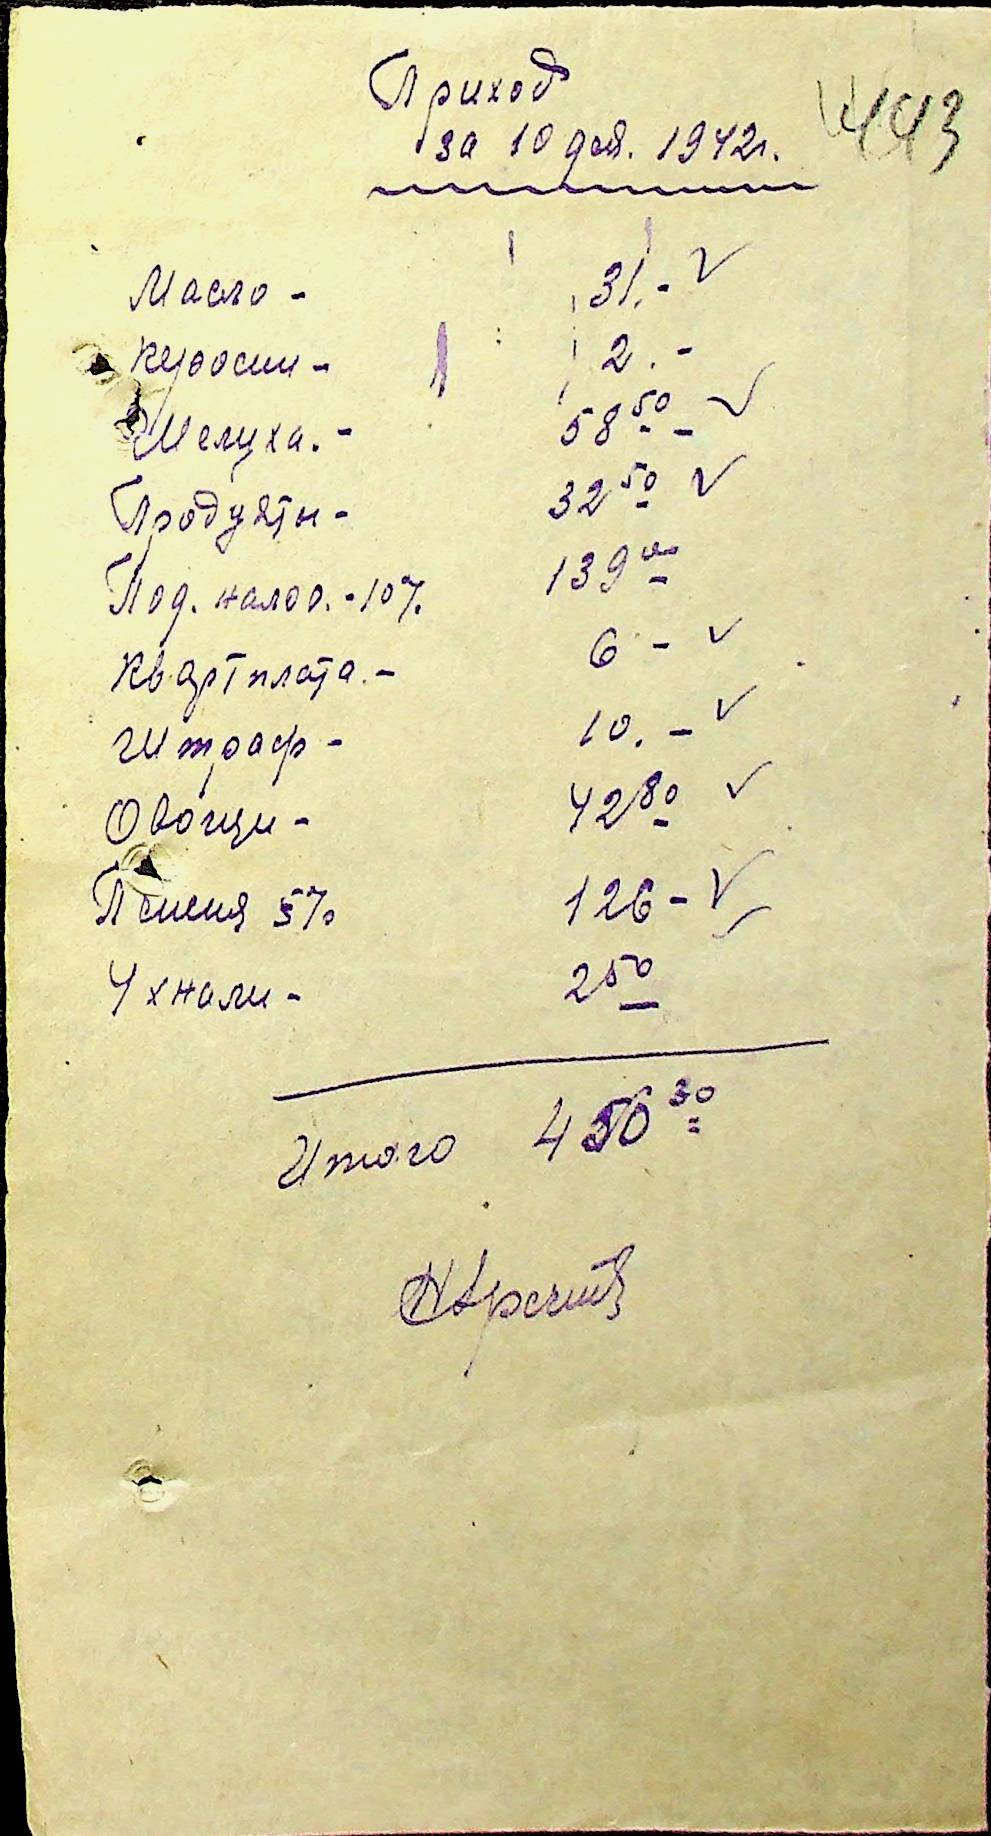 Приход
443
за 10 дек. 1942г.
Масло - 31.-
Керосин - 2.-
Шелуха. - 58 50 -
Продукты - 32 50
Под. налог. - 10% 139 00
Квартплата. - 6 -
Штраф - 10. -
Овощи - 42 80
Пшеня 5% 126 -
Ухнали - 2 50
Итого 450 30